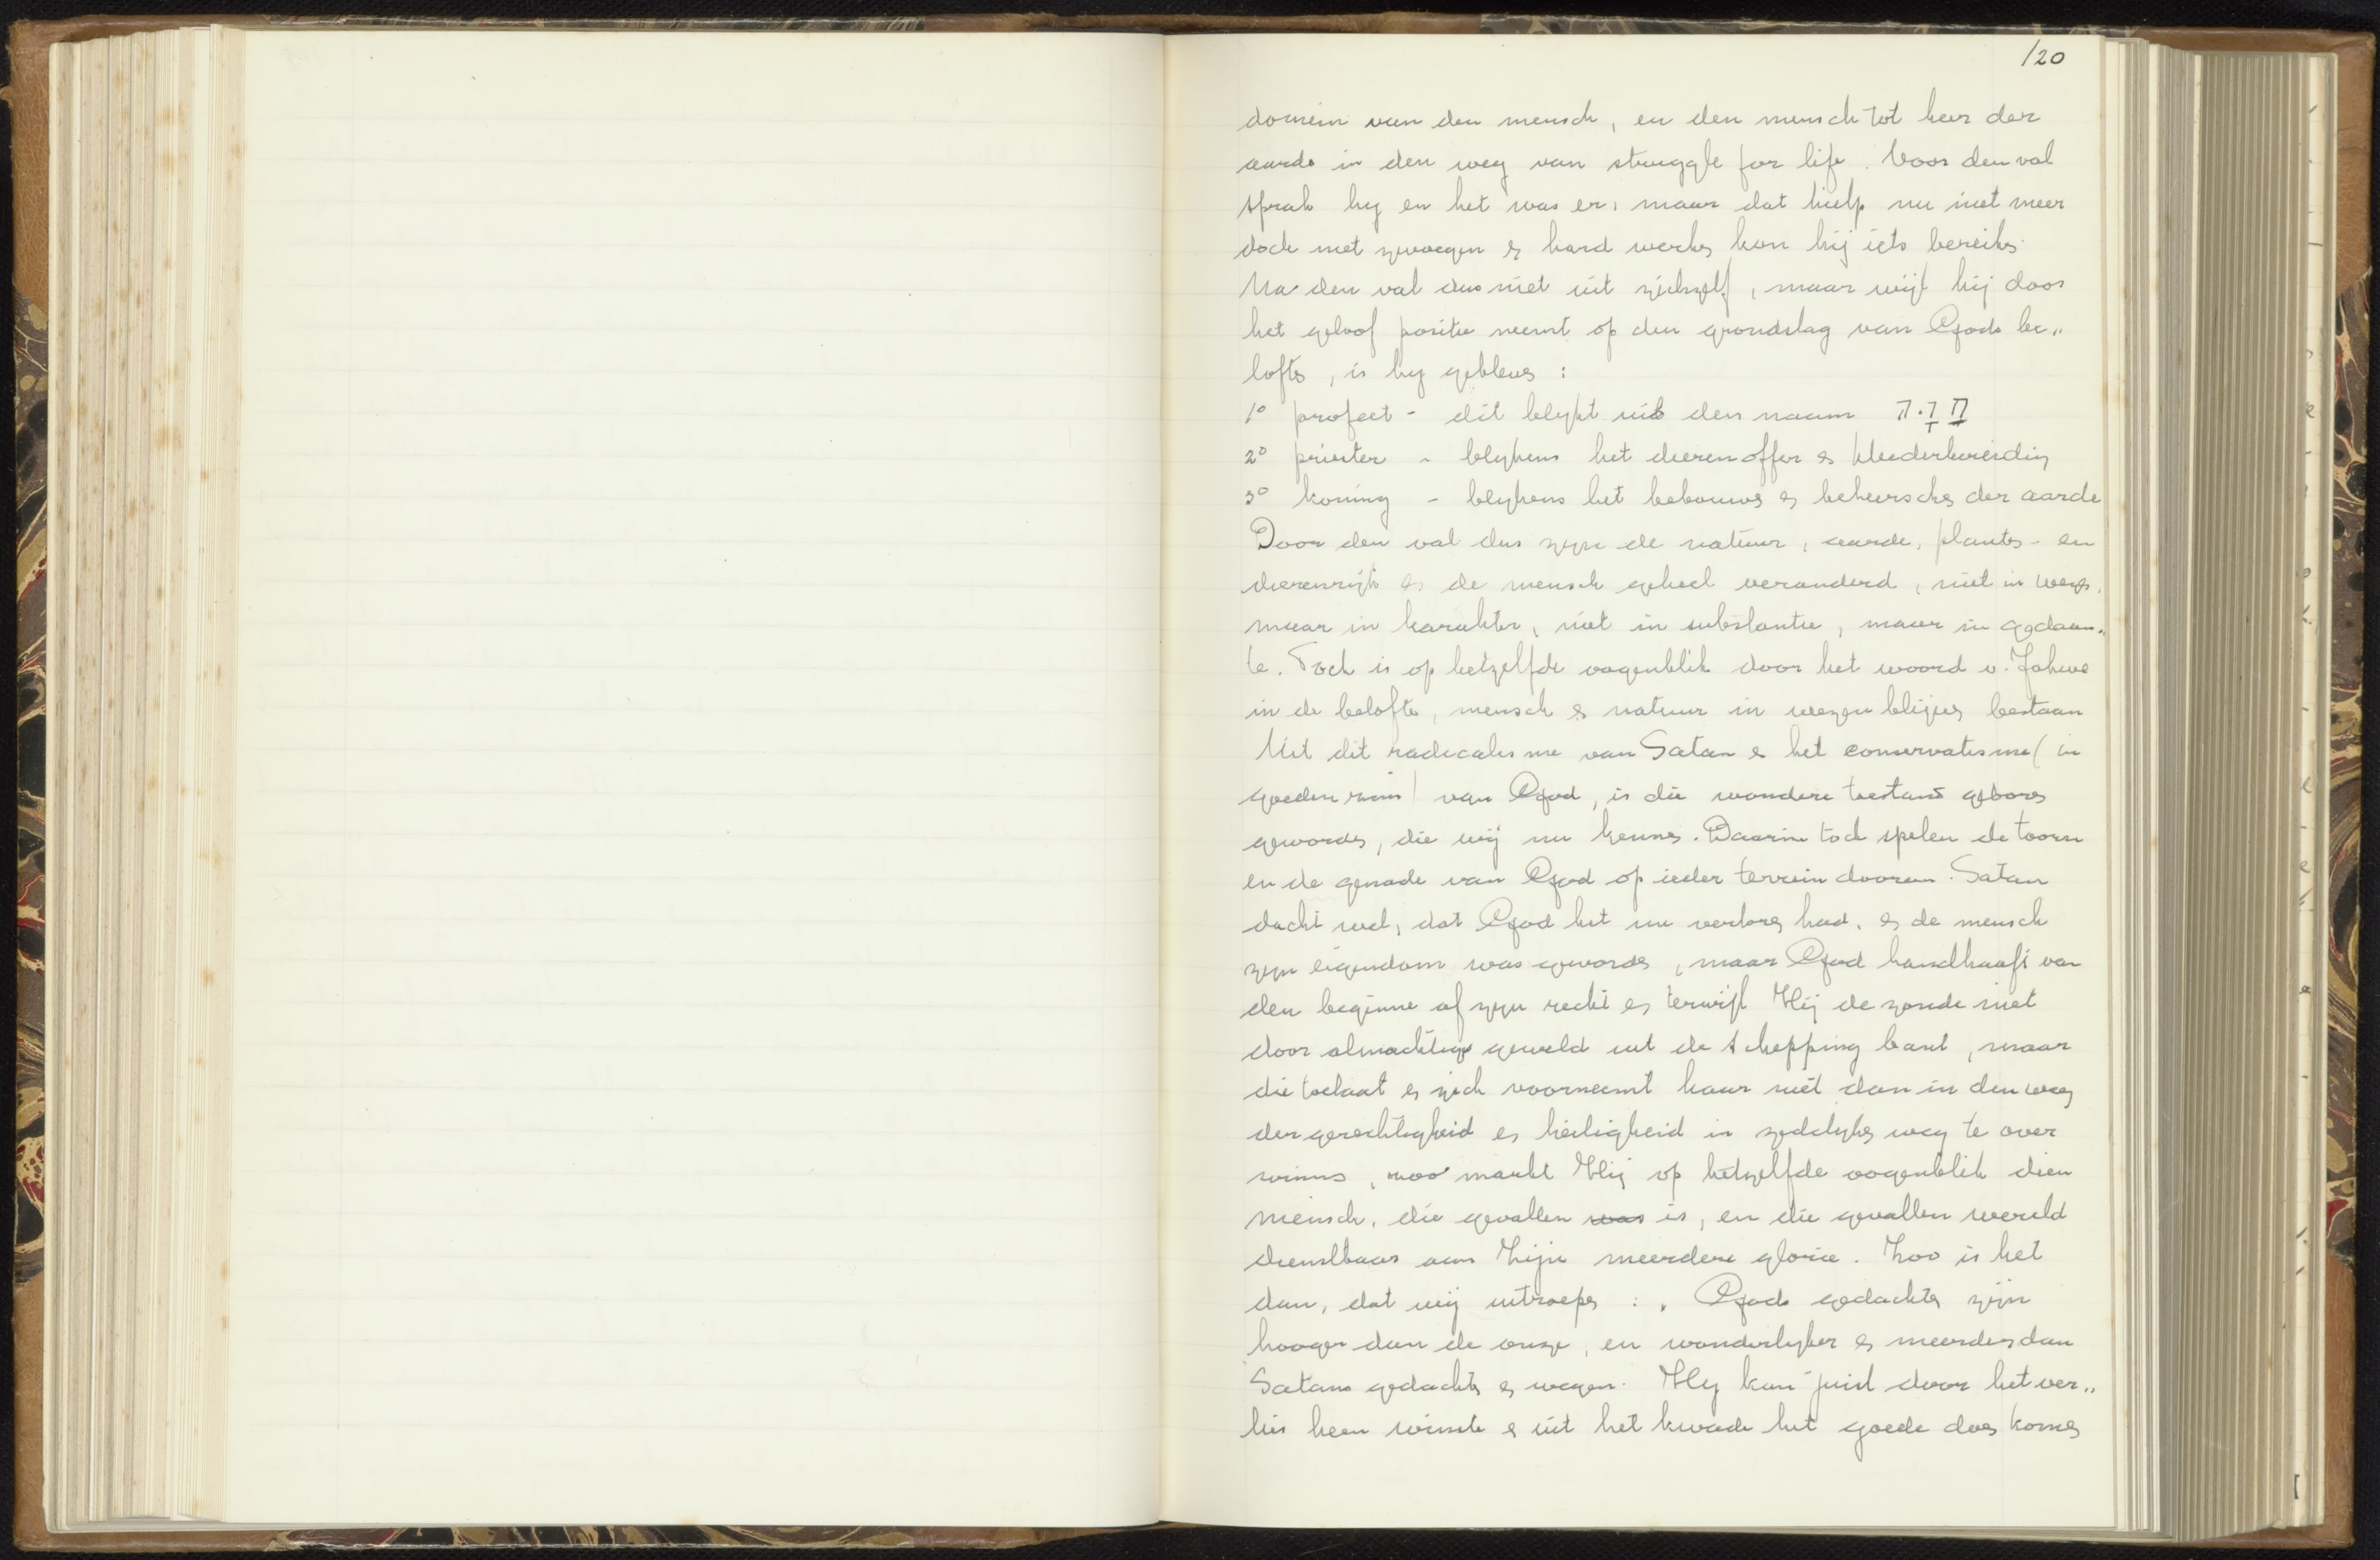 120
domein van den mensch, en den mensch tot heer der
aarde in den weg van struggle for life. Voor den val
sprak hy en het was er, maar dat hielp nu niet meer
doch met zwoegen en hard werken kon hij iets bereiken.
Na den val dus niet uit zichzelf, maar wijl hij door
het geloof positie neemt op den grondslag van Gods be„
lofte, is hy gebleven :
1º profeet - dit blykt uit den naam
2º priester - blykens het dierenoffer en kleederbereiding
3º koning - blykens het bebouwen en beheerschen der aarde
Door den val dus zyn de natuur, aarde, planten- en
dierenrijk en de mensch geheel veranderd, niet in wezen,
maar in karakter, niet in substantie, maar in gedaan„
te. Toch is op hetzelfde oogenblik door het woord v. Jahwe
in de belofte, mensch en natuur in wezen blijven bestaan
Uit dit radicalisme van Satan en het conservatisme (in
goeden zin) van God, is die wondere toestand geboren
geworden, die wij nu kennen. Daarin toch spelen de toorn
en de genade van God op ieder terrein dooreen. Satan
dacht wel, dat God het nu verloren had, en de mensch
zyn eigendom was geworden, maar God handhaaft van
den beginne af zyn recht en terwijl Hij de zonde niet
door almachtige geweld uit de schepping bant, maar
die toelaat en zich voorneemt haar niet dan in den weg
der gerechtigheid en heiligheid in zedelyken weg te over
winnen, zoo maakt Hij op hetzelfde oogenblik dien
mensch, die gevallen was is, en die gevallen wereld
dienstbaar aan Zijn meerdere glorie. Zoo is het
dan, dat wij uitroepen : „ Gods gedachten zijn
hooger dan de onze, en wonderlyker en meerder dan
Satans gedachten en wegen. Hy kan juist door het ver„
lies heen winnen en uit het kwade het goede doen komen